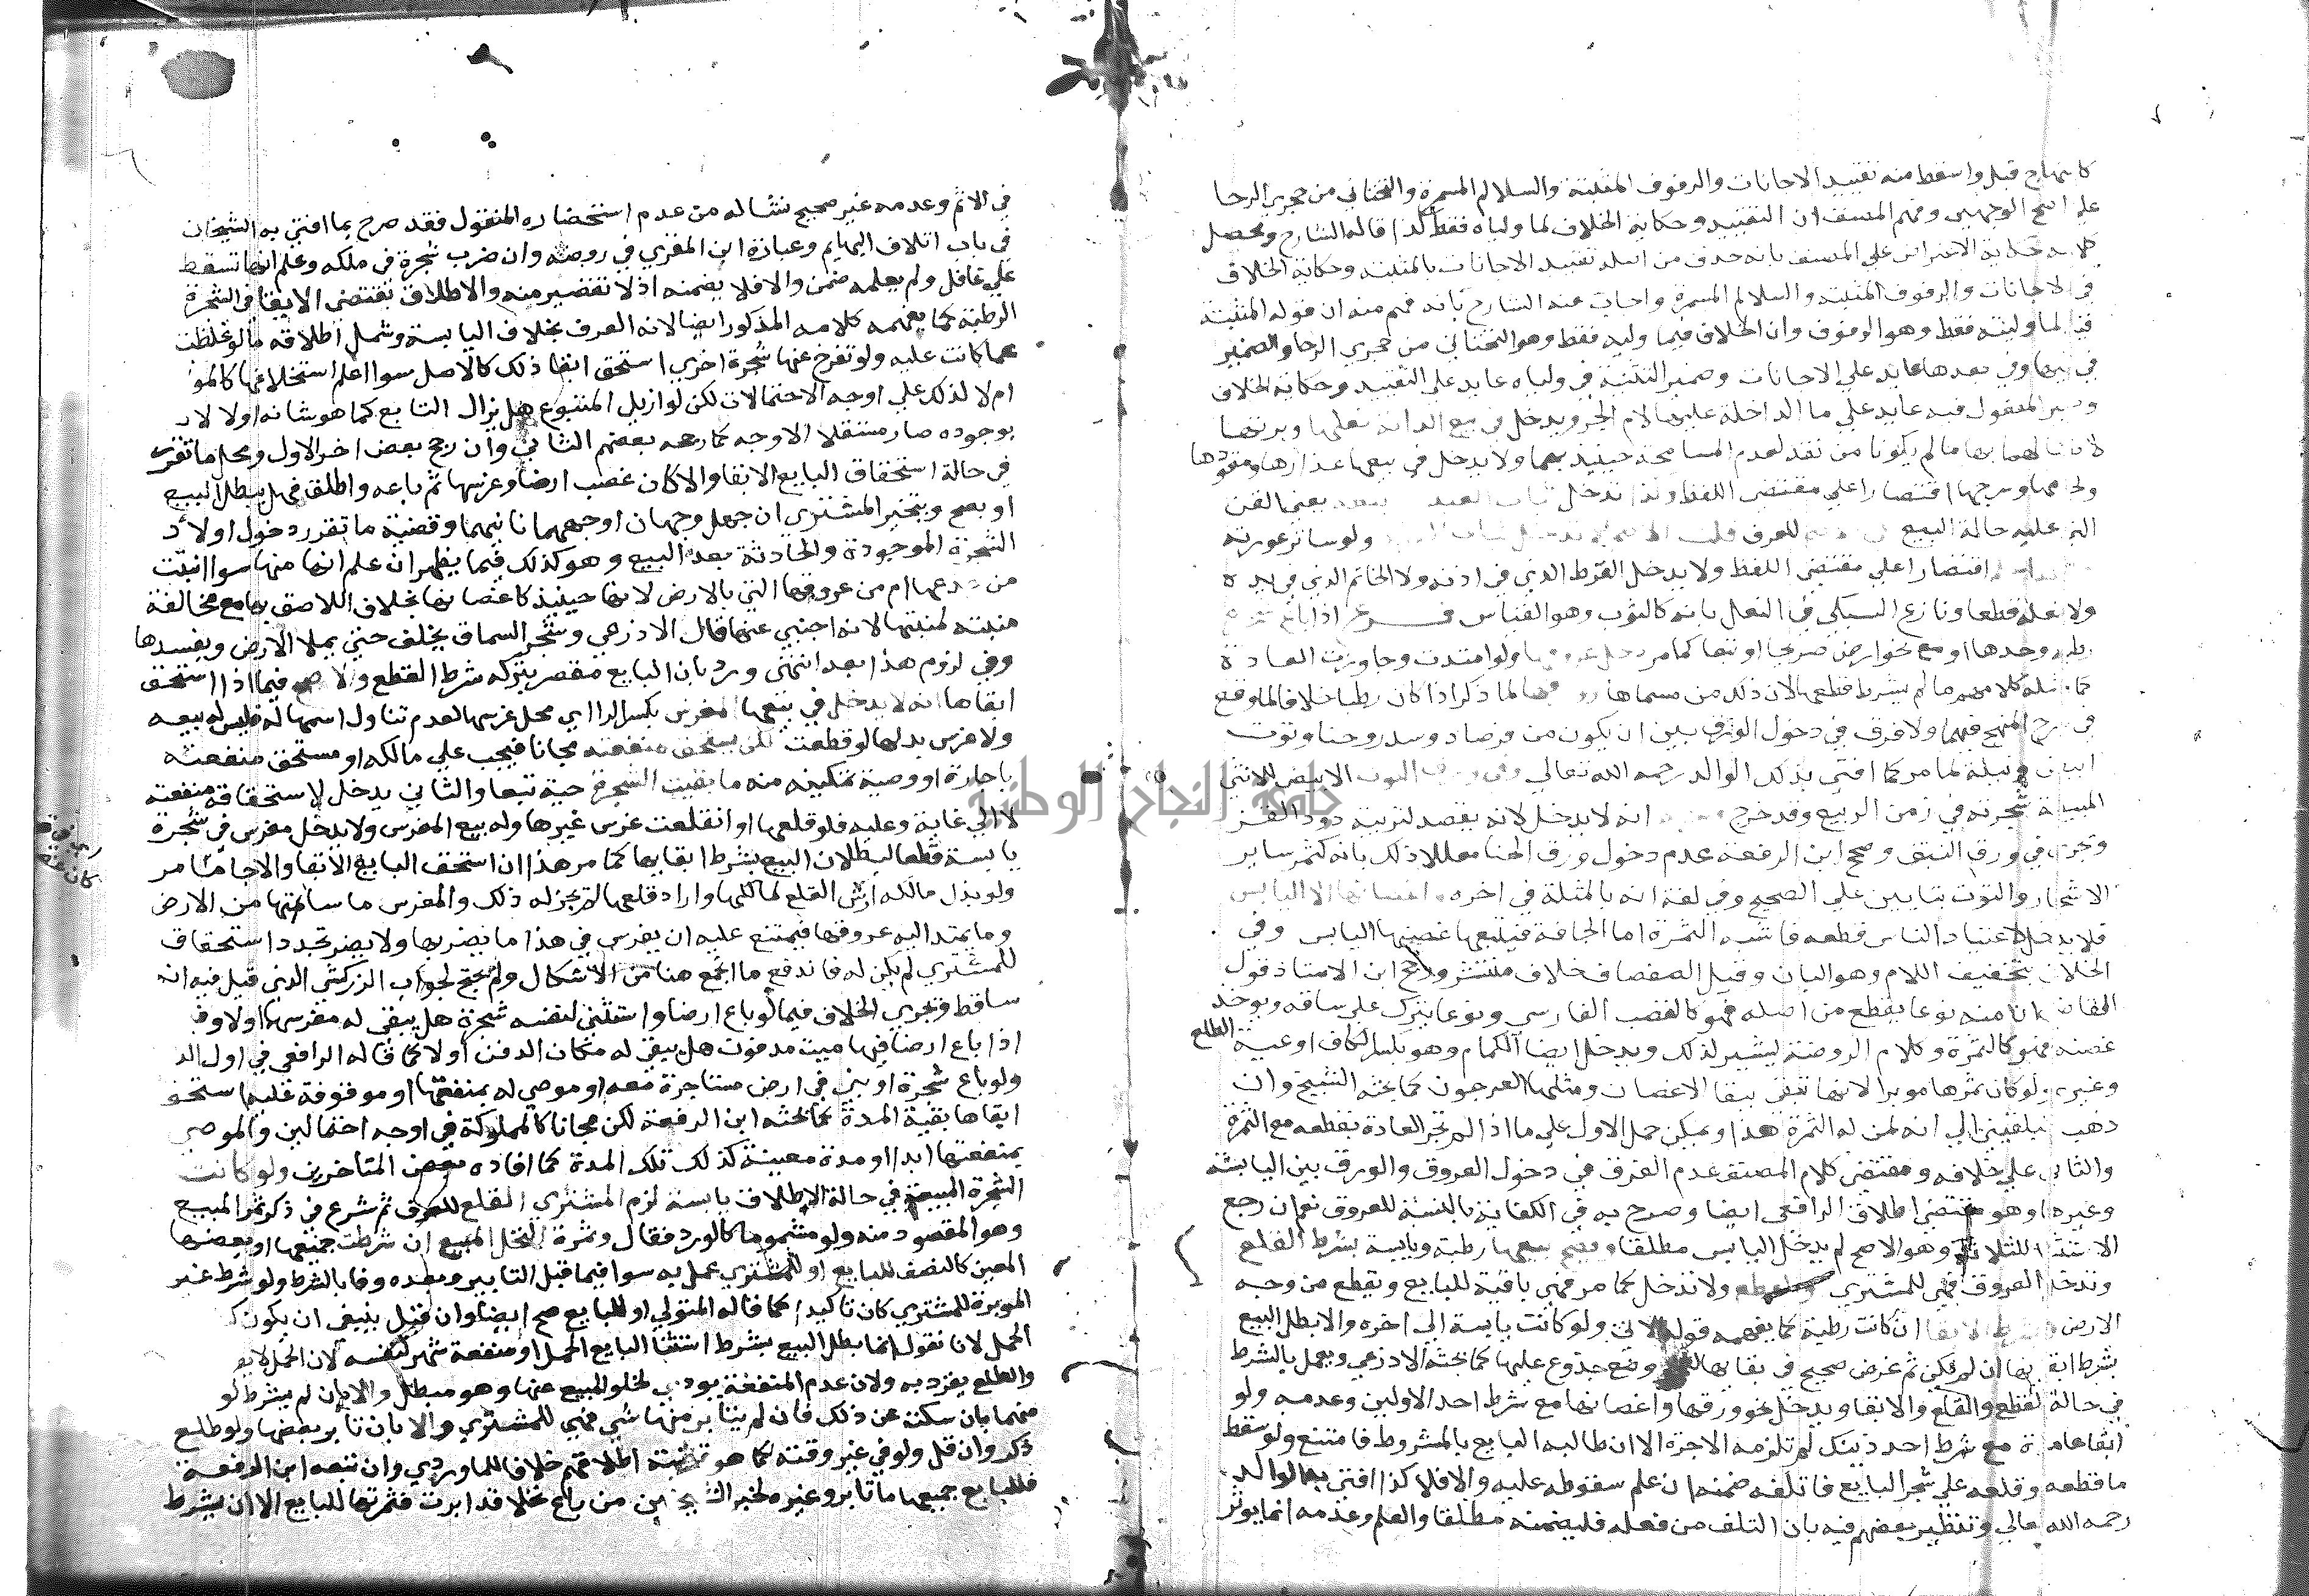 كالمنهاج قيل واسقط منه تقييد الاجانات والرفوف المثبتة والسلالم المسمرة والتحتاني من حجري الرحا
علي اصح الوجهين وفهم المصنف ان التقييد وحكاية الخلاف لما ولياه فقط كذا قاله الشارح ومحصل
كلامه حكاية الاعتراض علي المصنف بانه حذف من اصله تقييد الاجانات بالمثبتة وحكاية الخلاف
في الاجانات والرفوف المثبتة والسلالم المسمرة واجاب عنه الشارح بانه فهم منه ان قوله المثبتة
قيد لما وليته فقط وهو الرفوف وان الخلاف فيما وليه فقط وهو التحتاني من حجري الرحا والضمير
في فيها وفي بعدها عايد علي الاجانات وضمير التثنية في ولياه عايد علي التقييد وحكاية الخلاف
وضمير المفعول فيه عايد علي ما الداخلة عليها لام الجر ويدخل في بيع الدابة نعلها وبرتها
لاتصالهما بها ما لم يكونا من نقد لعدم المسامحة حينيذ بهما ولا يدخل في بيعها عذارها ومقودها
ولجامها وسرجها اقتصارا علي مقتضي اللفظ وتدخل ثياب العبد يعني القن
التي عليه حالة البيع للعرف قلت الاصح لا تدخل ثياب العبد ولو ساتر عورته
اقتصارا علي مقتضي اللفظ ولا يدخل القرط الذي في اذنه ولا الخاتم الذي في يده
ولا نعله قطعا ونازع السبكي في النعل بانه كالثوب وهو القياس فرع اذا باع شجرة
رطبة وحدها او مع نحو ارض صريحا او تبعا كما مر دخل عروقها ولو امتدت وجاوزت العادة
كما شمله كلامهم ما لم يشرط قطعها لان ذلك من مسماها وورقها لما ذكر اذا كان رطبا خلافا لما وقع
في شرح المنهج فيهما ولا فرق في دخول الورق بين ان يكون من فرصاد وسدر وحنا وتوت
ابيض ونيلة لما مر كما افتي بذلك الوالد رحمه الله تعالي وفي ورق التوت الابيض للانثي
المبيعة شجرته في زمن الربيع وقد خرج وجه انه لا يدخل لانه يقصد لتربية دود القز
وتجري في ورق النبق وصحح ابن الرفعة عدم دخول ورق الحنا معللا ذلك بانه كثمر ساير
الاشجار والتوت بتايين علي الصحيح وفي لغة انه بالمثلثة في اخره واغصانها الا اليابس
فلا يدخل لاعتياد الناس قطعه فاشبه الثمرة اما الجافة فيتبعها غصنها اليابس وفي
الخلاف بتخفيف اللام وهو البان وقيل الصفصاف خلاف منتشر ورجح ابن الاستاذ قول
القاضي ان منه نوعا يقطع من اصله فهو كالقصب الفارسي ونوعا يترك علي ساقه ويوخذ
غصنه فهو كالثمرة وكلام الروضة يشير لذلك ويدخل ايضا الكمام وهو بكسر الكاف اوعية الطلع
وغيره ولو كان ثمرها موبرا لانها تبقي ببقا الاغصان ومثلها العرجون كما بحثه الشيخ وان
ذهب البلقيني الي انه لمن له الثمرة هذا ويمكن حمل الاول علي ما اذا لم تجر العادة بقطعه مع الثمرة
والثاني علي خلافه ومقتضي كلام المصنف عدم الفرق في دخول العروق والورق بين اليابسة
وغيرها وهو مقتضي اطلاق الرافعي ايضا وصرح به في الكفاية بالنسبة للعروق نعم ان رجع
الاستثنا للثلاثة وهو الاصح لم يدخل اليابس مطلقا ويصح بيعها رطبة ويابسة بشرط القلع
وتدخل العروق فهي للمشتري ولا تدخل كما مر فهي باقية للبايع وتقطع من وجه
الارض وبشرط الابقا ان كانت رطبة كما يفهمه قوله الاتي ولو كانت يابسة الي اخره والا بطل البيع
بشرط ابقايها ان لم يكن ثم غرض صحيح في بقايها لنحو وضع جذوع عليها كما بحثه الاذرعي ويعمل بالشرط
في حالة القطع والقلع والابقا ويدخل نحو ورقها واغصانها مع شرط احد الاولين وعدمه ولو
ابقاها مدة مع شرط احد ذينك لم تلزمه الاجرة الا ان طالبه البايع بالمشروط فامتنع ولو سقط
ما قطعه وقلعه علي شجر البايع فاتلفه ضمنه ان علم سقوطه عليه والا فلا كذا افتي به الوالد
رحمه الله تعالي وتنظير بعضهم فيه بان التلف من فعله فليضمنه مطلقا والعلم وعدمه انما يوثر
في الاثم وعدمه غير صحيح نشا له من عدم استحضاره المنقول فقد صرح بما افتي به الشيخان
في باب اتلاف البهايم وعبارة ابن المقري في روضه وان ضرب شجرة في ملكه وعلم انها تسقط
علي غافل ولم يعلمه ضمن والا فلا يضمنه اذ لا تقصير منه والاطلاق يقتضي الابقا في الشجرة
الرطبة كما يفهمه كلامه المذكور ايضا لانه العرف بخلاف اليابسة وشمل اطلاقه ما لو غلظت
عما كانت عليه ولو تفرخ عنها شجرة اخري استحق ابقا ذلك كالاصل سوا اعلم استخلافها كالموز
ام لا لذلك علي اوجه الاحتمالات لكن لو ازيل المتبوع هل يزال التابع كما هو شانه او لا لان
بوجوده صار مستقلا الاوجه كما رجحه بعضهم الثاني وان رجح بعض اخر الاول ومحل ما تقرر
في حالة استحقاق البايع الابقا والا كان غصب ارضا وغرسها ثم باعه واطلق فهل يبطل البيع
او يصح ويتخير المشتري ان جهل وجهان اوجههما ثانيهما وقضية ما تقرر دخول اولاد
الشجرة الموجودة والحادثة بعد البيع وهو كذلك فيما يظهر ان علم انها منها سوا انبتت
من جذعها ام من عروقها التي بالارض لانها حينيذ كاغصانها بخلاف اللاصق بها مع مخالفة
منبته لمنبتها لانه اجنبي عنها قال الاذرعي وشجر السماق يخلف حتي يملا الارض ويفسدها
وفي لزوم هذا بعد انتهي ورد بان البايع مقصر بتركه شرط القطع والاصح فيما اذا استحق
ابقاها انه لا يدخل في بيعها المغرس بكسر الرا اي محل غرسها لعدم تناول اسمها له فليس له بيعه
ولا غرس بدلها لو قطعت لكن يستحق منفعته مجانا فيجب علي مالكه او مستحق منفعته
باجارة او وصية تمكينه منه ما بقيت الشجرة حية تبعا والثاني يدخل لاستحقاقه منفعته
لا الي غاية وعليه فلو قلعها او انقلعت غرس غيرها وله بيع المغرس ولا يدخل مغرس في شجرة
يابسة قطعا لبطلان البيع بشرط ابقايها كما مر هذا ان استحق البايع الابقا والا جا ما مر
ولو بذل مالكه ارش القلع لمالكها واراد قلعها لم يجز له ذلك والمغرس ما سامتها من الارض
وما يمتد اليه عروقها فيمتنع عليه ان يغرس في هذا ما يضر بها ولا يضر تجدد استحقاق
للمشتري لم يكن له فاندفع ما لجمع هنا من الاشكال ولم يحتج لجواب الزركشي الذي قيل فيه انه
ساقط وتجري الخلاف فيما لو باع ارضا واستثني لنفسه شجرة هل يبقي له مغرسها او لا وفيما
اذا باع ارضا فيها ميت مدفون هل يبقي له مكان الدفن او لا كما قاله الرافعي في اول الد
ولو باع شجرة او بني في ارض مستاجرة معه او موصي له بمنفعتها او موقوفة عليه استحق
ابقاها بقية المدة كما بحثه ابن الرفعة لكن مجانا كالمملوكة في اوجه احتمالين والموصي
بمنفعتها ابدا او مدة معينة كذلك تلك المدة كما افاده بعض المتاخرين ولو كانت
الشجرة المبيعة في حالة الاطلاق يابسة لزم المشتري القلع للعرف ثم شرع في ذكر ثمر المبيع
وهو المقصود منه ولو مشموما كالورد فقال وثمرة النخل المبيع ان شرطت جميعها او بعضها
المعين كالنصف للبايع او للمشتري عمل به سوا فيما قبل التابير وبعده وفا بالشرط ولو شرط غير
الموبرة للمشتري كان تاكيدا كما قاله المتولي او للبايع صح ايضا وان قيل ينبغي ان يكون كـ
الحمل لانا نقول انما بطل البيع بشرط استثنا البايع الحمل او منفعة شهر لنفسه لان الحمل لا يفـ
والطلع يفرد به ولان عدم المنفعة يودي لخلو المبيع عنها وهو مبطل والا بان لم يشرط لو
منهما بان سكت عن ذلك فان لم يتابر منها شي فهي للمشتري والا بان تابر بعضها ولو طلع
ذكر وان قل ولو في غير وقته كما هو قضية اطلاقهم خلافا للماوردي وان تبعه ابن الرفعة
فللبايع جميعها ما تابر وغيره لخبر الشيخين من باع نخلا قد ابرت فثمرتها للبايع الا ان يشرط
جامعة النجاح الوطنية